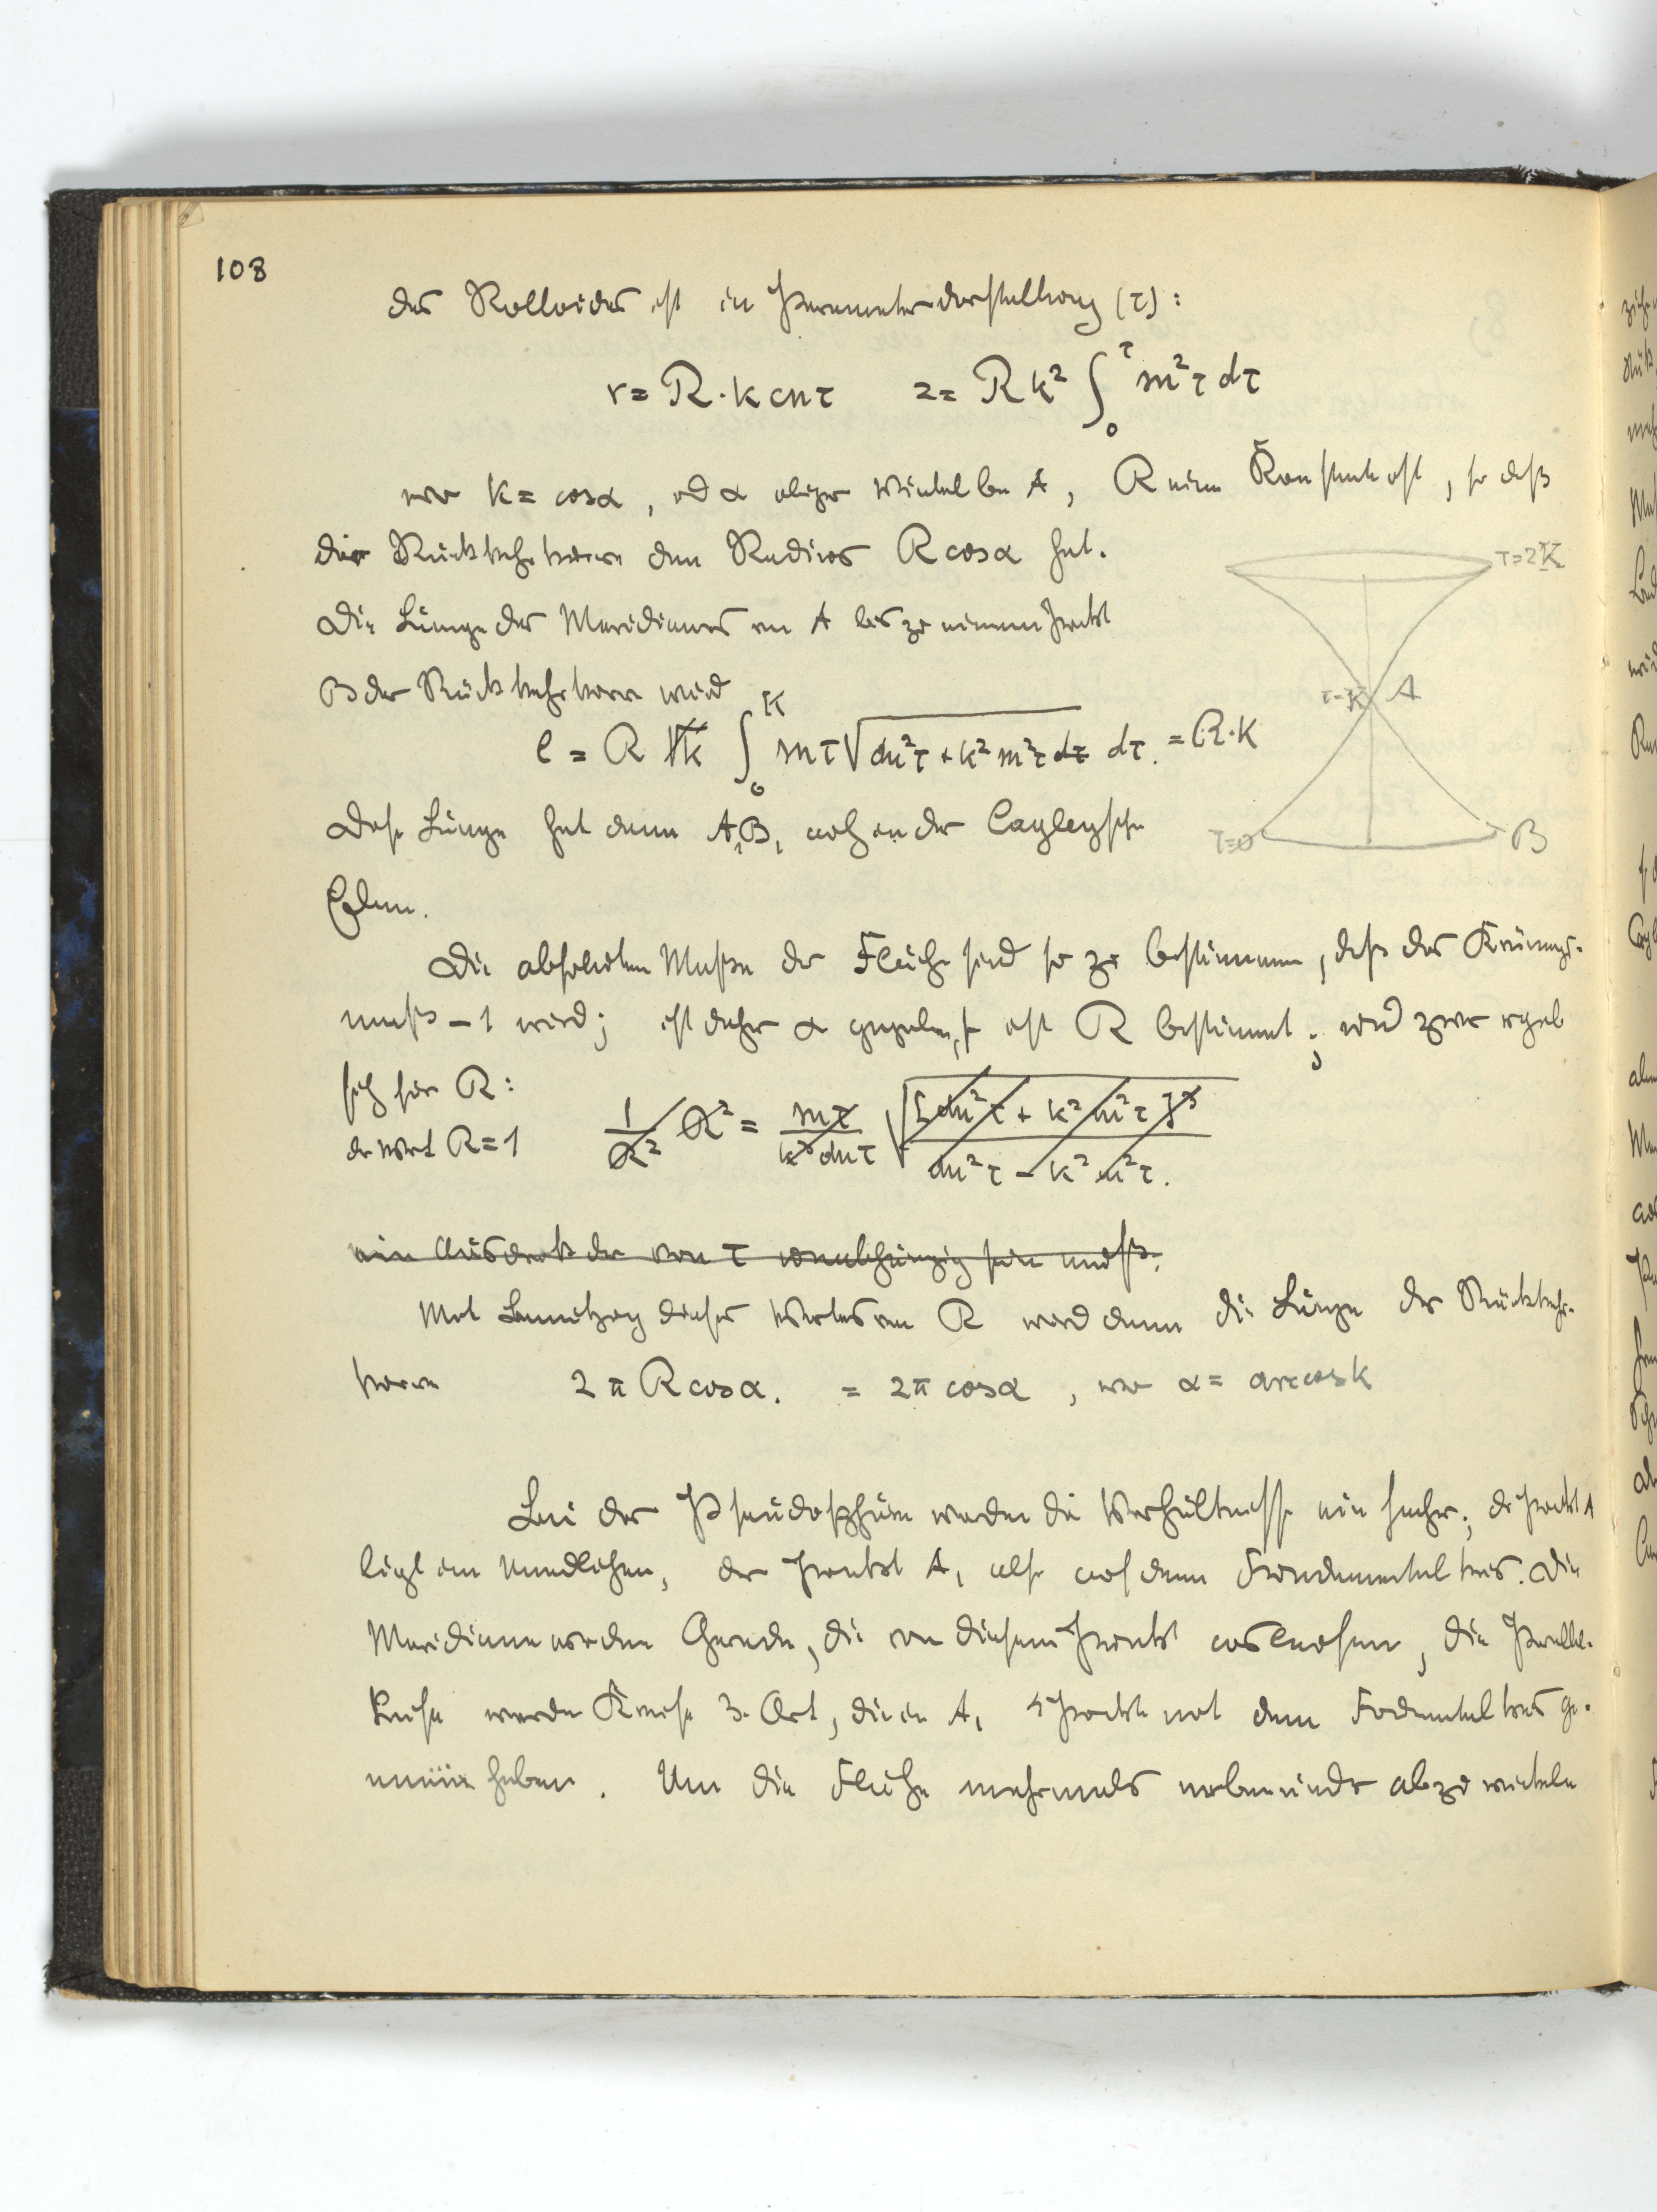 108
des Rolloides ist in Parameterdarstellung (τ):
r = R·k cn τ   z = R k² ∫₀^τ sn²τ dτ
wo k = cos α, und α obiger Winkel bei A, R eine Konstante ist, so daß
die Rückkehrkurve den Radius R cos α hat.
Die Länge des Meridianes von A bis zu einem Punkt
B der Rückkehrkurve wird
l = R k ∫₀^K sn τ √(dn²τ + k² sn²τ dτ) dτ. = R·K
Diese Länge hat dann A₁B₁ auch in der Cayleyschen
Ebene.
τ=2K
τ=K A
τ=0 B
Die absoluten Maße der Fläche sind so zu bestimmen, daß das Krümmungs-
maß -1 wird; ist daher α gegeben, so ist R bestimmt; und zwar ergibt
sich für R:
der Wert R = 1
1/R² R² = sn τ / k³ dn τ √([dn²τ + k² sn²τ]³ / dn²τ - k² sn²τ.)
ein Ausdruck der von τ unabhängig sein muß.
Mit Benutzung dieses Wertes von R wird dann die Länge der Rückkehr-
kurve 2π R cos α. = 2π cos α, wo α = arc cos k
Bei der Pseudosphäre werden die Verhältnisse einfacher; der Punkt A
liegt im Unendlichen, der Punkt A₁ also auf dem Fundamentalkreis. Die
Meridiane werden Gerade, die von diesem Punkt auslaufen, die Parallel-
kreise werden Kreise 3. Art, die in A₁ 4 Punkte mit dem Fundamentalkreis ge-
mein haben. Um die Fläche mehrmals nebeneinander abzuwickeln